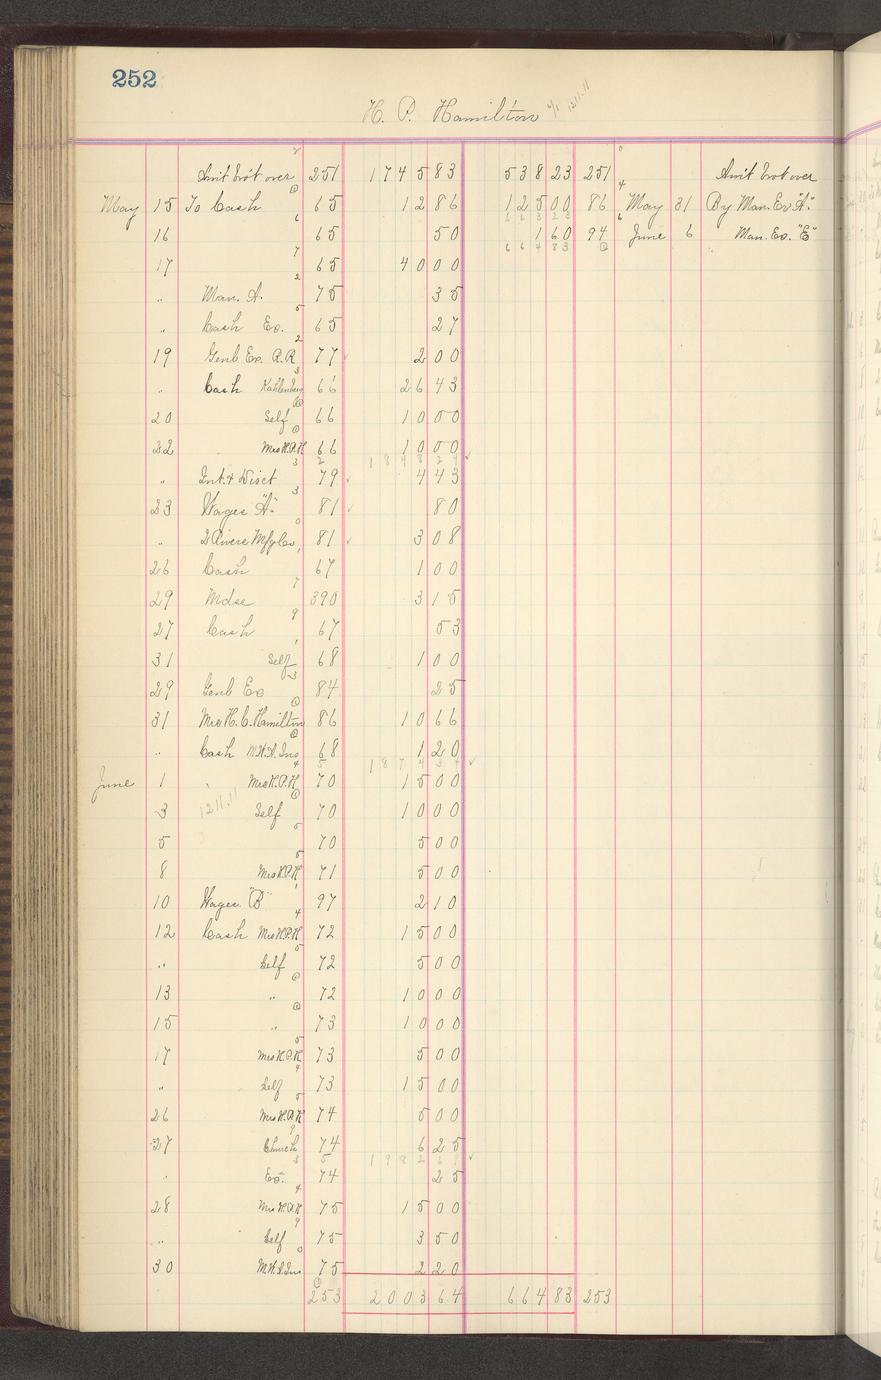 252
H. P. Hamilton
Am't bro't over 251 1745 83 538 23 251 Am't bro't over
May 15 To Cash 65 12 86 125 00 86 May 31 By Man. Ex "A"
16 65 50 1 60 94 June 6 Man. Ex. "E"
17 65 40 00
" Man. A. 75 35
" Cash Ex. 65 27
19 Genl Ex. R.R 77 2 00
" Cash Kahlenberg 66 26 43
20 Self 66 10 00
22 Mrs H.P.H 66 10 00
1848 29
" Int. & Disct 79 4 43
23 Wages "A" 81 80
" 2 Rivers Mfg Co, 81 3 08
26 Cash 67 1 00
29 Mdse 390 3 15
27 Cash 67 53
31 Self 68 1 00
29 Genl Ex 84 25
31 Mrs H. C. Hamilton 86 10 66
" Cash M.H.A. Ins 68 1 20
1874 34
June 1 " Mrs H.P.H 70 15 00
3 12.11.11 Self 70 10 00
5 70 5 00
8 Mrs H.P.H 71 5 00
10 Wages. "B" 97 2 10
12 Cash Mrs H.P.H 72 15 00
" Self 72 5 00
13 " 72 10 00
15 " 73 10 00
17 Mrs H.P.H 73 5 00
" Self 73 15 00
26 Mrs H.P.H 74 5 00
27 Church 74 6 25
" Ex. 74 25
28 Mrs H.P.H 75 15 00
" Self 75 3 50
30 M.H.S. Ins 75 2 20
253 2003 64 664 83 253